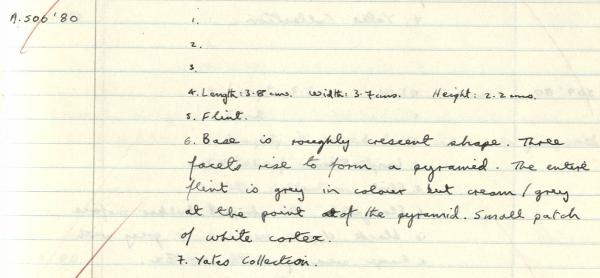 A.506'80
1.
2.
3.
4. Length: 3.8cms. Width: 3.7cms. Height: 2.2cms.
5. Flint.
6. Base is roughly crescent shape. Three
facets rise to form a pyramid. The entire
flint is grey in colour but cream/grey
at the point of the pyramid. Small patch
of white cortex.
7. Yates Collection.